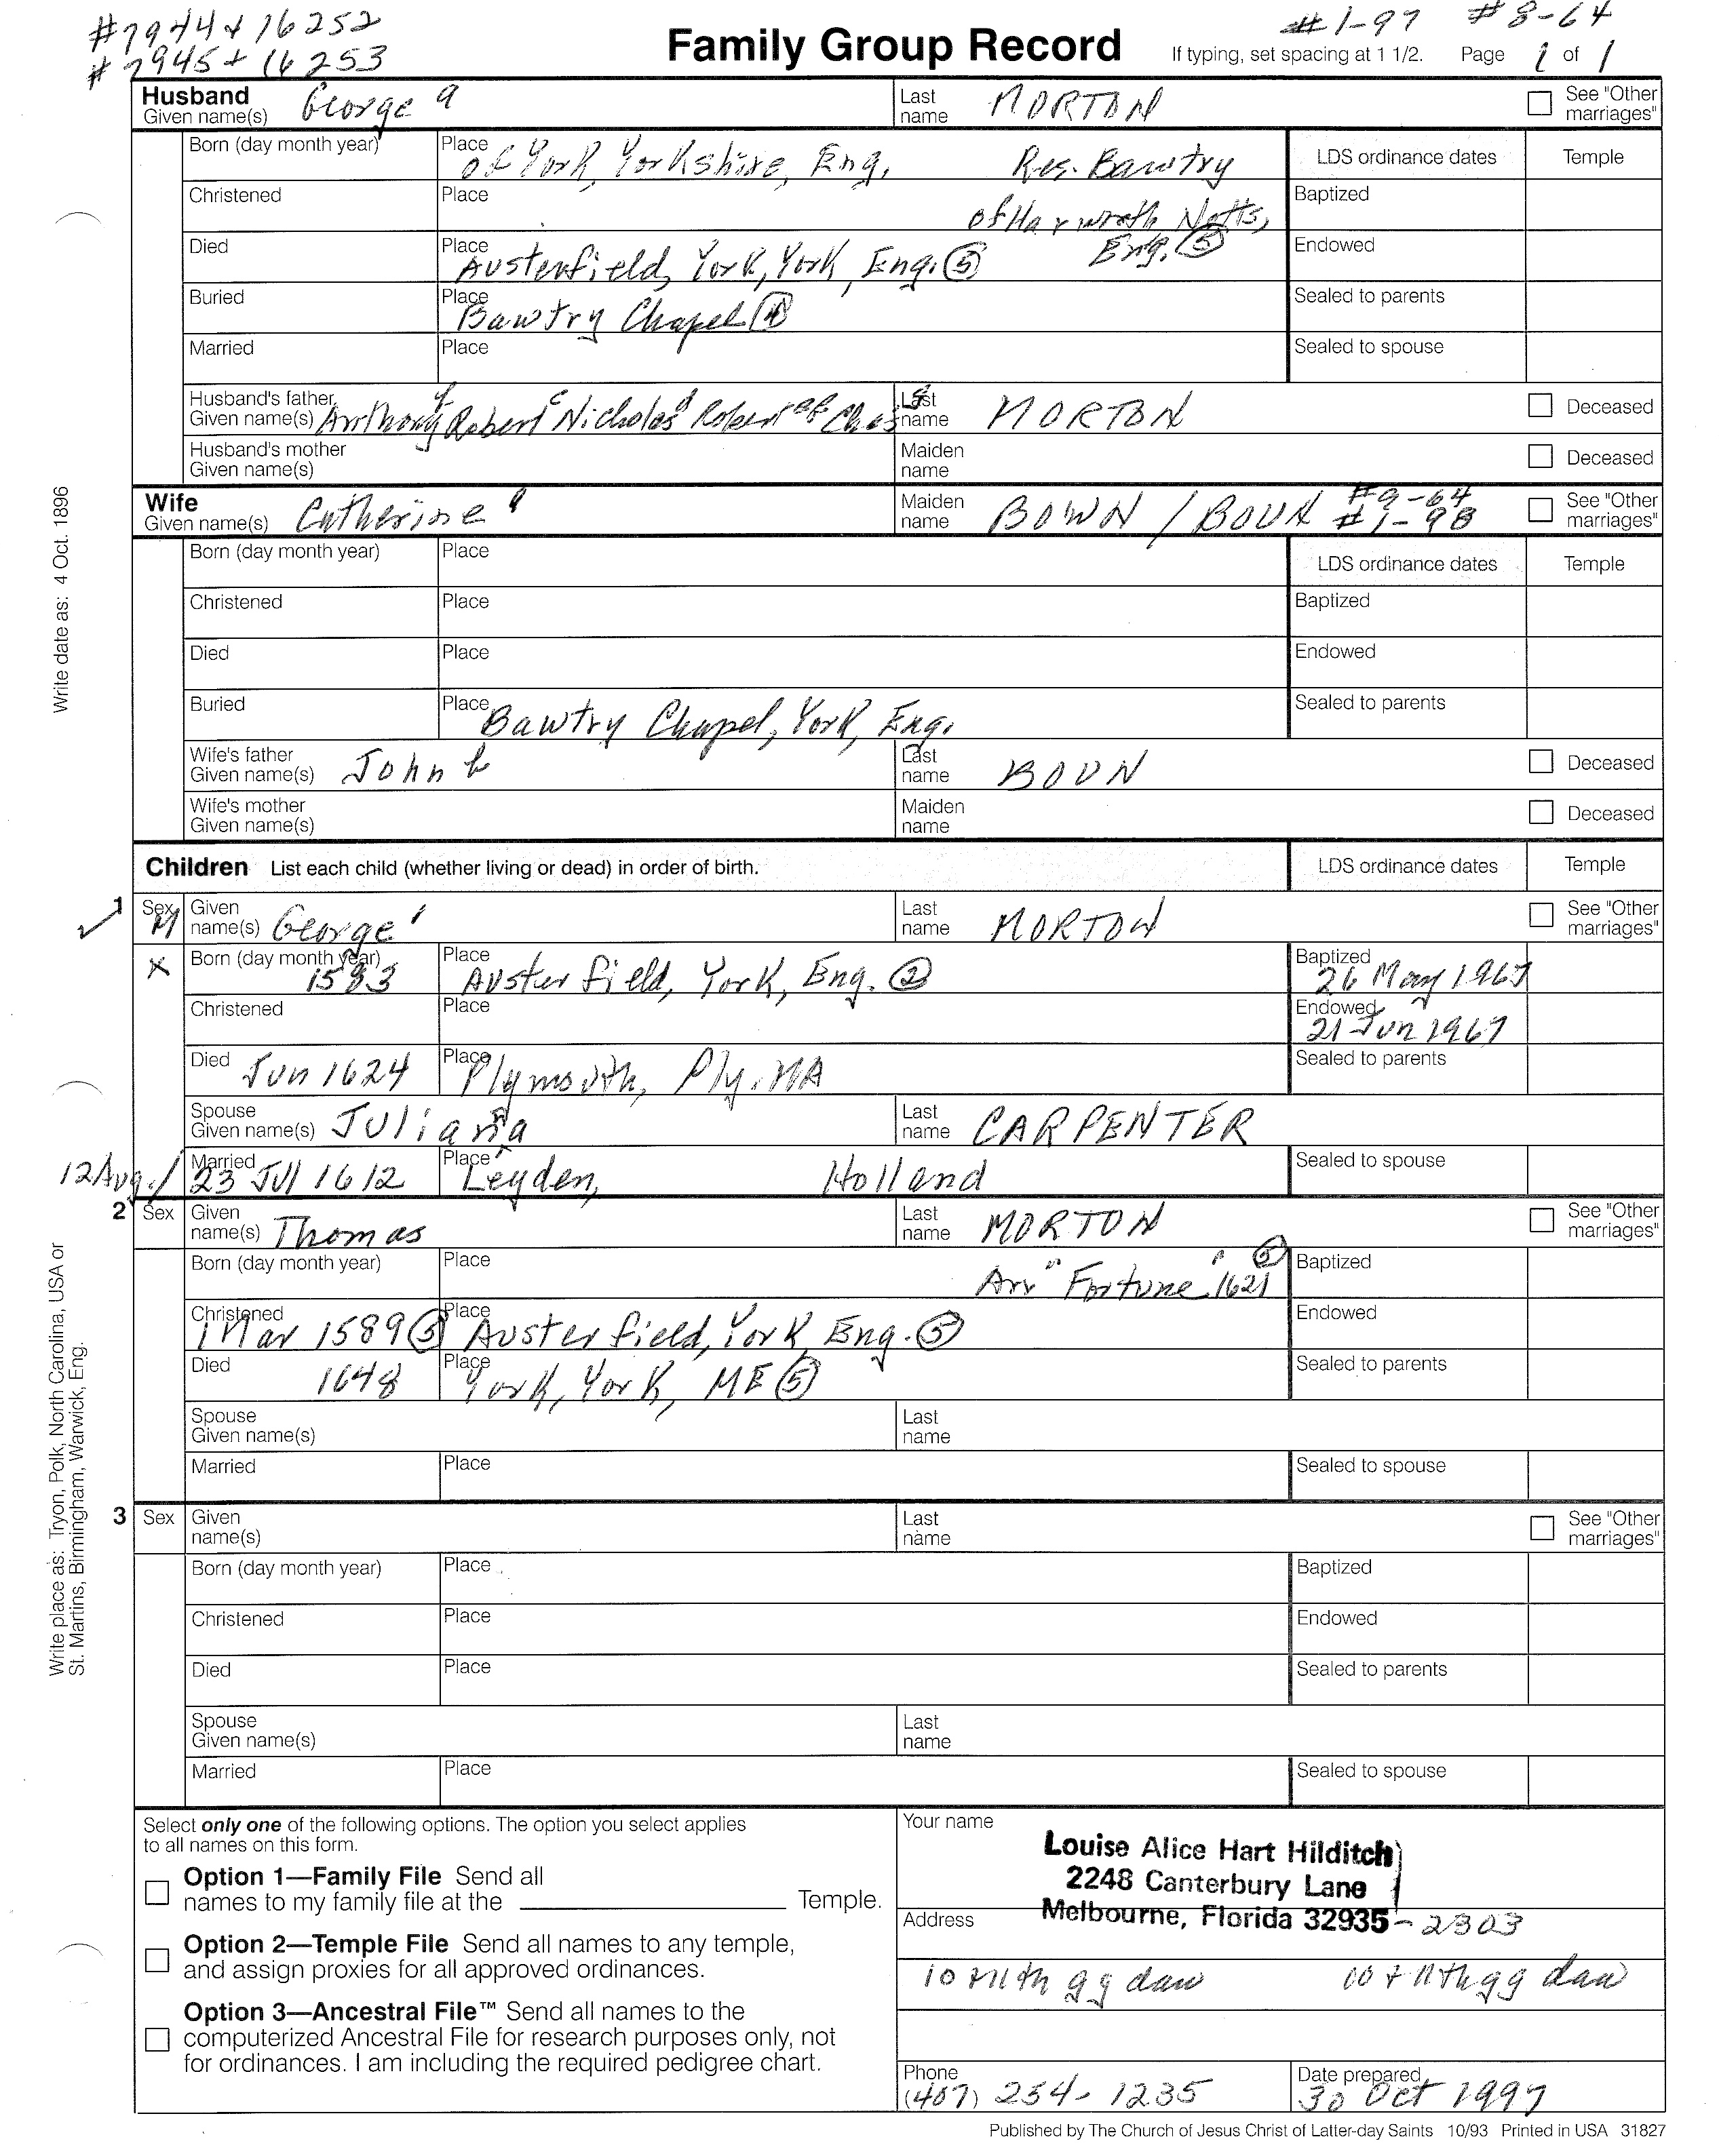 #7944 + 16252
#7945 + 16253
#1-97 #8-64
Family Group Record If typing, set spacing at 1 1/2. Page 1 of 1
Husband
Given name(s) George a Last name MORTON See "Other marriages"
Born (day month year) Place of York, Yorkshire, Eng. Res. Bawtry LDS ordinance dates Temple
Christened Place of Harworth Notts, Baptized
Died Place Austerfield, York, York, Eng. (5) Eng. (5) Endowed
Buried Place Bawtry Chapel (4) Sealed to parents
Married Place Sealed to spouse
Husband's father
Given name(s) Anthony Robert Nicholas Robert Chas Last name MORTON Deceased
Husband's mother
Given name(s) Maiden name Deceased
Wife
Given name(s) Catherine Maiden name BOWN / BOUN #9-64 #1-98 See "Other marriages"
Born (day month year) Place LDS ordinance dates Temple
Christened Place Baptized
Died Place Endowed
Buried Place Bawtry Chapel, York, Eng. Sealed to parents
Wife's father
Given name(s) John Last name BOUN Deceased
Wife's mother
Given name(s) Maiden name Deceased
Children List each child (whether living or dead) in order of birth. LDS ordinance dates Temple
1 Sex M Given name(s) George Last name MORTON See "Other marriages"
X Born (day month year) 1583 Place Austerfield, York, Eng. (2) Baptized 26 May 1967
Christened Place Endowed 21 Jun 1967
Died Jun 1624 Place Plymouth, Ply. MA Sealed to parents
Spouse
Given name(s) Juliana Last name CARPENTER
12 Aug./ Married 23 Jul 1612 Place Leyden, Holland Sealed to spouse
2 Sex Given name(s) Thomas Last name MORTON See "Other marriages"
Born (day month year) Place Arr "Fortune" 1621 (5) Baptized
Christened 1 Mar 1589 (5) Place Austerfield, York, Eng. (5) Endowed
Died 1648 Place York, York, ME (5) Sealed to parents
Spouse
Given name(s) Last name
Married Place Sealed to spouse
3 Sex Given name(s) Last name See "Other marriages"
Born (day month year) Place Baptized
Christened Place Endowed
Died Place Sealed to parents
Spouse
Given name(s) Last name
Married Place Sealed to spouse
Select only one of the following options. The option you select applies
to all names on this form.
Option 1—Family File Send all
names to my family file at the Temple.
Option 2—Temple File Send all names to any temple,
and assign proxies for all approved ordinances.
Option 3—Ancestral File™ Send all names to the
computerized Ancestral File for research purposes only, not
for ordinances. I am including the required pedigree chart.
Your name
Louise Alice Hart Hilditch
2248 Canterbury Lane
Address Melbourne, Florida 32935-2303
10 + 11th gg dau 10 + 11th gg dau
Phone (407) 254-1235 Date prepared 30 Oct 1997
Published by The Church of Jesus Christ of Latter-day Saints 10/93 Printed in USA 31827
Write date as: 4 Oct. 1896
Write place as: Tryon, Polk, North Carolina, USA or
St. Martins, Birmingham, Warwick, Eng.